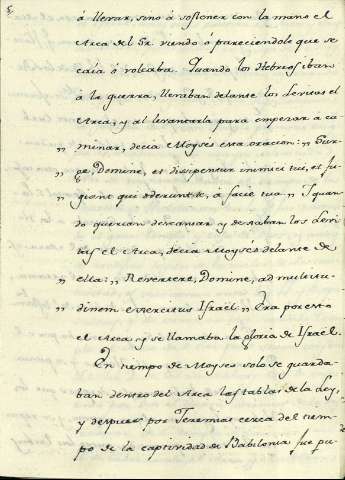 á llevar, sino á sostener con la mano el
Arca del Sr. viendo ó pareciendole que se
caía ó volcaba. Quando los Hebreos iban
á la guerra, llevaban delante los Levitas el
Arca, y al levantarla para empezar a ca-
minar, decia Moyses esta oracion: „ Sur-
„ ge, Domine, et disipentur inimici tui, et fu-
„ giant qui oderunt te, á facie tua „ I quan-
do querian descansar y dexaban los Levi-
tas el Arca, decia Moysés delante de
ella: „ Revertere, Domine, ad multitu-
„ dinem exercitus Israël „ Era por esto
el Arca, y se llamaba la gloria de Israël.
En tiempo de Moyses solo se guarda-
ban dentro del Arca las tablas de la Ley,
y despues por Jeremias cerca del tiem-
po de la captividad de Babilonia fue pu-